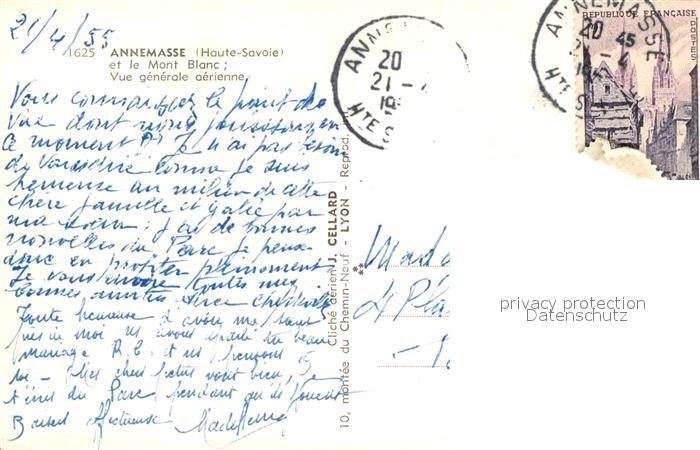 21/4/55
1625 ANNEMASSE (Haute-Savoie)
et le Mont Blanc ;
Vue générale aérienne
Vous connaissez le point de
vue dont nous jouissons en
ce moment ? Je n'ai pas besoin
de vous dire comme je suis
heureuse au milieu de cette
chère famille et gâtée par
ma sœur ; j'ai de bonnes
nouvelles du Parc je peux
donc en profiter pleinement
Je vous envoie toutes mes
bonnes amitiés
Toute heureuse d'avoir ma sœur
près de moi ns avons parlé du beau
mariage R. C. et ns pensons à
toi - Mes chers petits vont bien, je
t'écris du Parc pendant qu'ils jouent
Baisers affectueux Madeleine
Cliché aérien J. CELLARD
10, montée du Chemin-Neuf - LYON - Reprod.
ANNEMASSE
20
21 -
19
HTE S
RÉPUBLIQUE FRANÇAISE
POSTES
ANNEMASSE
20 45
21 - 4
HTE S
Mad
4 Pla
privacy protection
Datenschutz